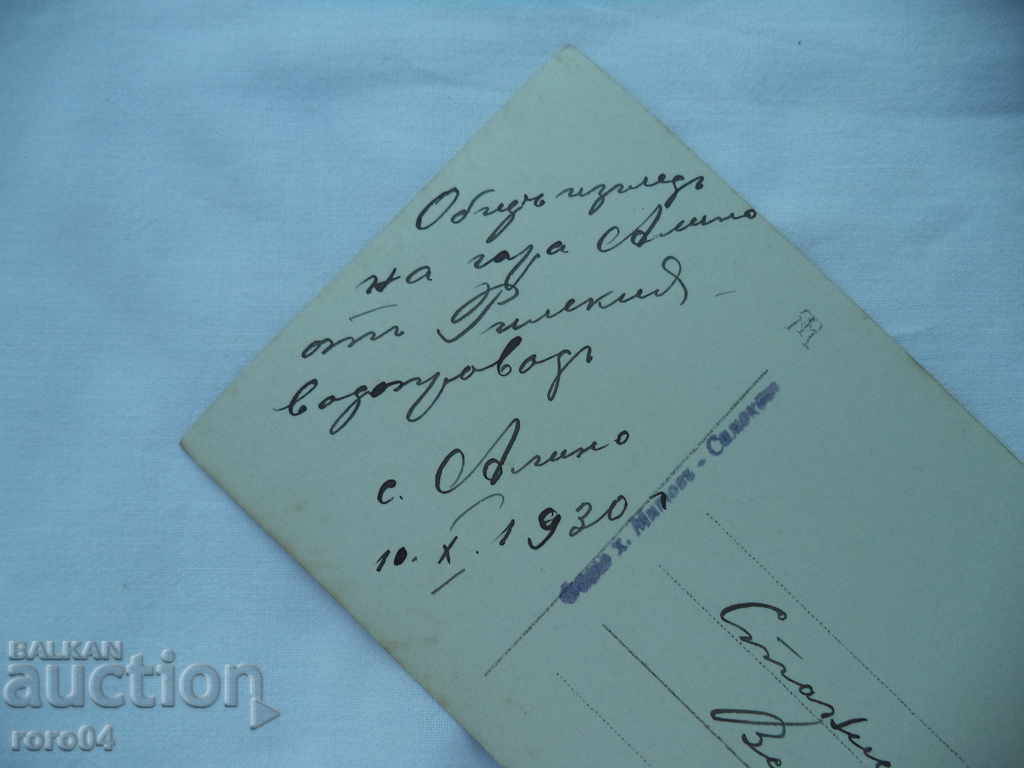 Общъ изгледъ
на гара Алино
отъ Рилския
водопроводъ
с. Алино
10. X. 1930 г
Фото х. Митовъ - Самоковъ
BALKAN
auction
roro04